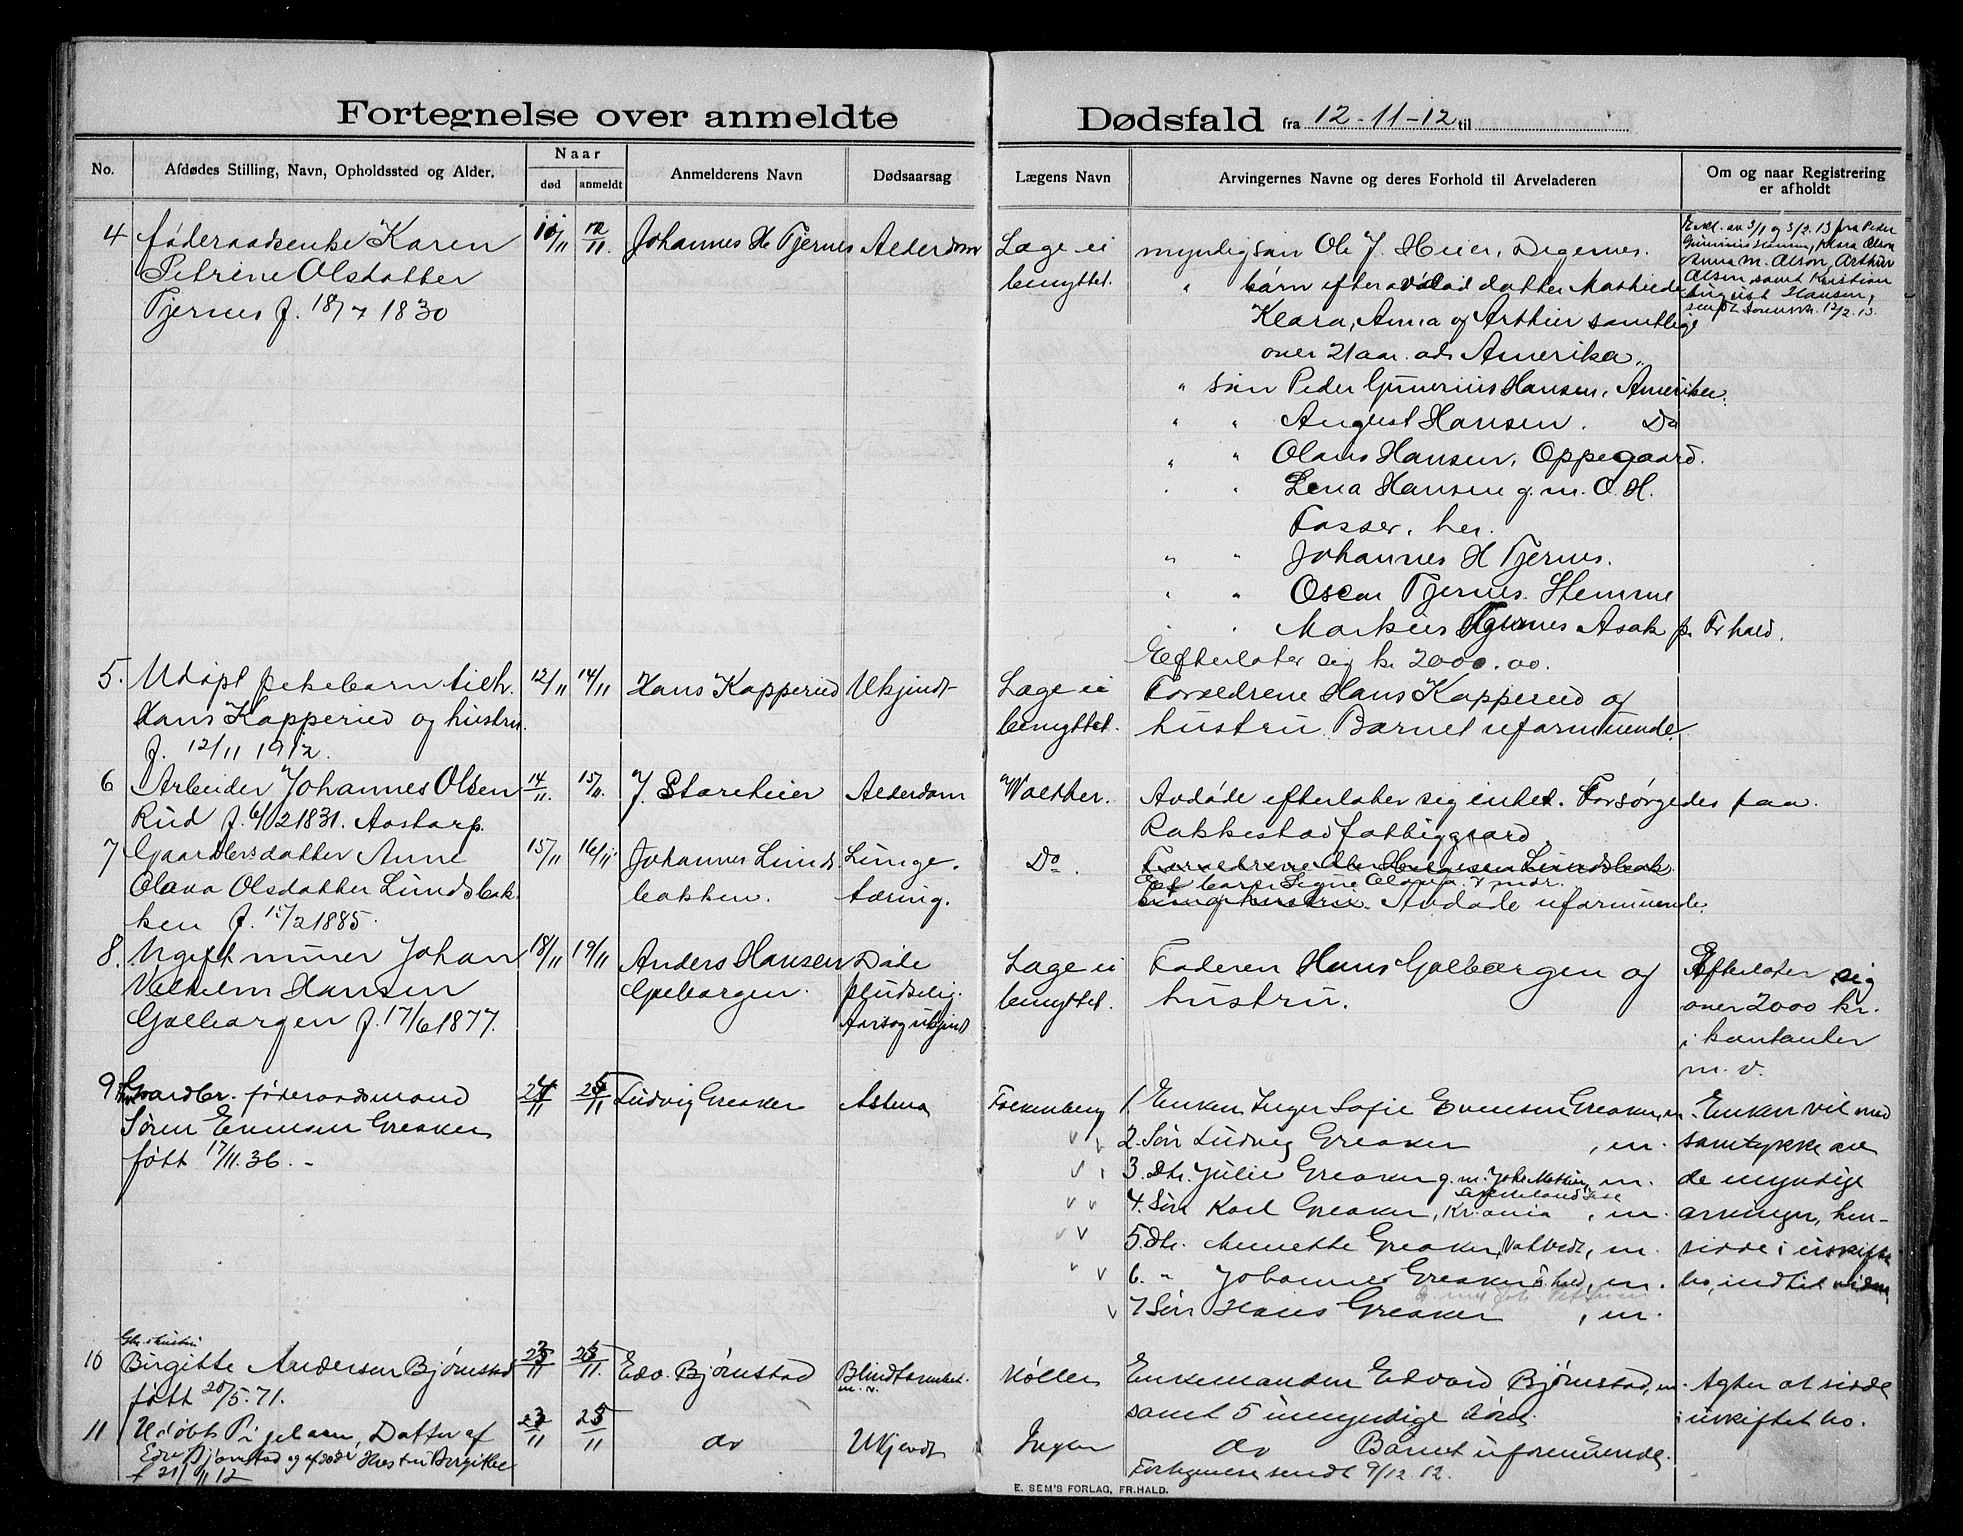 Fortegnelse over anmeldte Dødsfald fra 12-11-12 til
No.
Afdødes Stilling, Navn, Opholdssted og Alder.
Naar
død
anmeldt
Anmelderens Navn
Dødsaarsag
Lægens Navn
Arvingernes Navne og deres Forhold til Arveladeren
Om og naar Registrering
er afholdt
4 føderaadsenke Karen
Petrine Olsdatter
Tjernes f. 18/7 1830
10/11
12/11.
Johannes H. Tjernes
Alderdom
Læge ei
benyttet.
myndig søn Ole J. Heier, Degernes.
" børn efter avdød datter Mathilde
Klara, Anna og Arthur samtlige
over 21 aar. adr Amerika.
" søn Peder Gunerius Hansen, Amerika.
" " August Hansen. Do
" " Olaus Hansen, Oppegaard.
" " Lena Hansen g.m. O. H.
Fosser, her.
" " Johannes H Tjernes.
" " Oscar Tjernes. Hemme
" " Markus Tjernes Asak pr Fr hald.
Efterlater sig kr. 2000.00.
Erkl. av 3/1 og 3/2. 13 fra Peder
Gunerius Hansen, Klara Olson
Anna M. Olson, Arthur
Olson, samt Kristian
August Hansen,
sendt 12/2. 13.
5. Udøpt pikebarn tilh.
Hans Kopperud og hustru
f. 12/11 1912.
12/11
14/11
Hans Kopperud
Ukjendt
Læge ei
benyttet.
Forældrene Hans Kopperud og
hustru. Barnet uformuende.
6 Arbeider Johannes Olsen
Rud f. 6/2 1831. Aastorp.
14/11.
15/11.
J. Storeheier
Alderdom
Walther.
Avdøde efterlater sig intet. Forsørgedes paa
Rakkestad fattiggaard
7 Gaardbrs datter Anne
Olava Olsdatter Lundsbak-
ken f. 15/2 1885.
15/11
16/11.
Johannes Lunds
bakken.
Lunge-
tæring.
Do.
Forældrene Ole Lundsbak
Et barn Signe Olava. 7 mdr.
hustru. Avdøde uformuende.
8. Ugift murer Johan
Vilhelm Hansen
Golbergen f. 17/6 1877.
18/11
19/11
Anders Hansen
Golbergen.
Døde
pludselig.
Aarsag ukjent
Læge ei
benyttet.
Faderen Hans Golbergen og
hustru.
Efterlater sig
over 2000 kr.
i kontanter
m. v.
9 Gaardbr. føderaadsmand
Søren Evensen Greaker
født 17/11. 36. -
24/11
25/11
Ludvig Greaker
Astma
Falkenberg
1. Enken Inger Sofie Evensen Greaker, m.
2. Søn Ludvig Greaker , m.
3. Dtr. Julie Greaker g. m. Johs Mathisen, m.
4. Søn Karl Greaker, Kr.ania , m.
5. Dtr. Annette Greaker, , m.
6. " Johanne Greaker Fr. hald, m.
7 Søn Hans Greaker , m.
Enken vil med
samtykke av
de myndige
arvinger, hen-
sidde i uskiftet
bo, indtil
10 Gbr. hustru
Birgitte Andersen Bjørnstad
født 20/5. 71.
23/11
25/11.
Edv. Bjørnstad
Blindtarmbet.
m. v.
Møller
Enkemanden Edvard Bjørnstad, m.
samt 5 umyndige børn.
Agter at sidde
i uskiftet bo.
11 Udøbt Pigebarn, Datter af
Edv. Bjørnstad og afdøde Hustru Birgitte
f 21/11 12
23/11
25/11
do
Ukjendt
Ingen
do Barnet uformuende.
Fortegnelse sendt 9/12 12.
E. SEM'S FORLAG, FR.HALD.